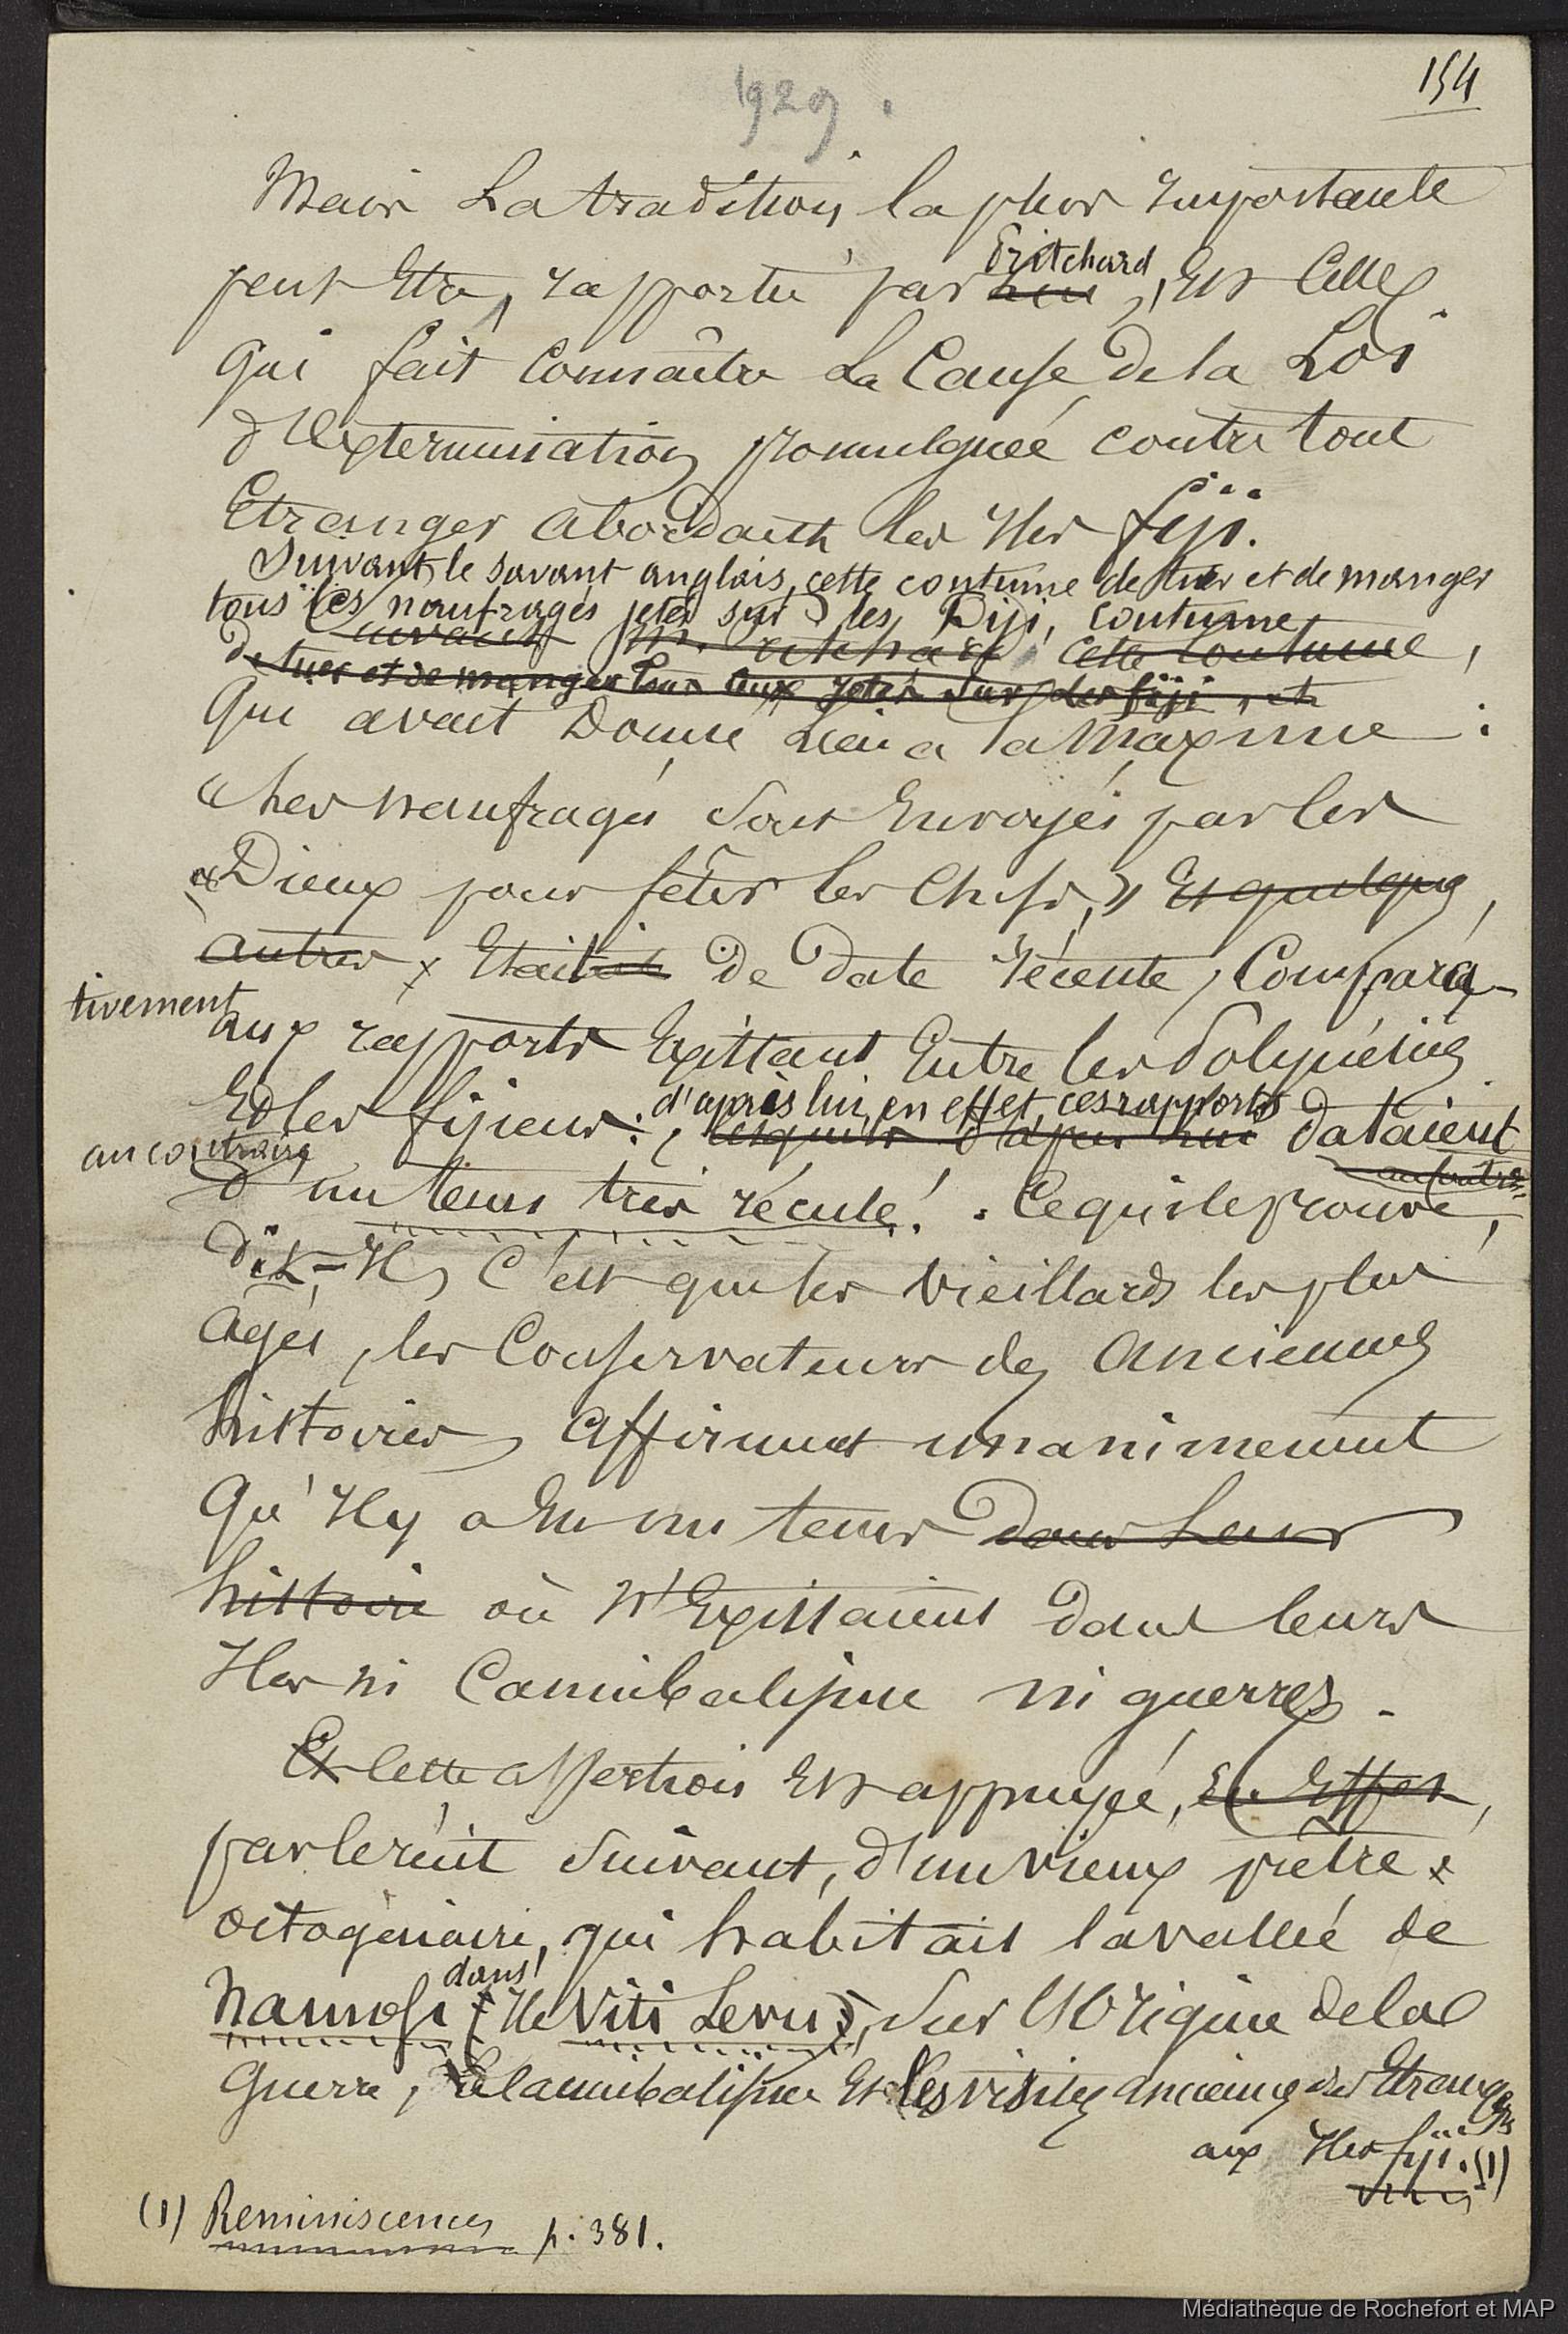 154
1929.
Mais la tradition la plus importante
peut être, rapportée par lui Pritchard, est celle
qui fait connaître la cause de la Loi
d'extermination promulguée contre tout
Etranger abordant les Iles fiji.
Suivant le savant anglais, cette coutume de tuer et de manger
tous les naufragés jetés sur les Fiji, coutume
suivant M. Pritchard cette coutume,
de tuer et de manger tous ceux jetés sur les fiji, et
qui avait donné lieu a la Maxime :
« Les naufragés sont envoyés par les
« Dieux pour fêter les Chefs, » et quelques
autres était de date récente, compara-
tivement
aux rapports existant entre les Polynésiens
et les fijiens : d'après lui, en effet, ces rapports lesquels d'après lui dataient
au contraire
au contraire
d'un tems très réculé ! . Ce qui le prouve,
dit-il, c'est que les vieillards les plus
agés, les conservateurs des anciennes
histoires, affirment unanimement
qu'il y a eu un tems dans leur
histoire où n'existaient dans leurs
Iles ni cannibalisme ni guerres.
Et cette assertion est appuyée, en effet,
par le récit suivant, d'un vieux prêtre
octogénaire, qui habitait la vallée de
Namosi dans (Ile Viti Levu), sur l'origine de la
guerre, le cannibalisme et les visites anciennes des Etrangers
aux Iles fiji. (1)
(1) Reminiscences p. 381.
Médiathèque de Rochefort et MAP